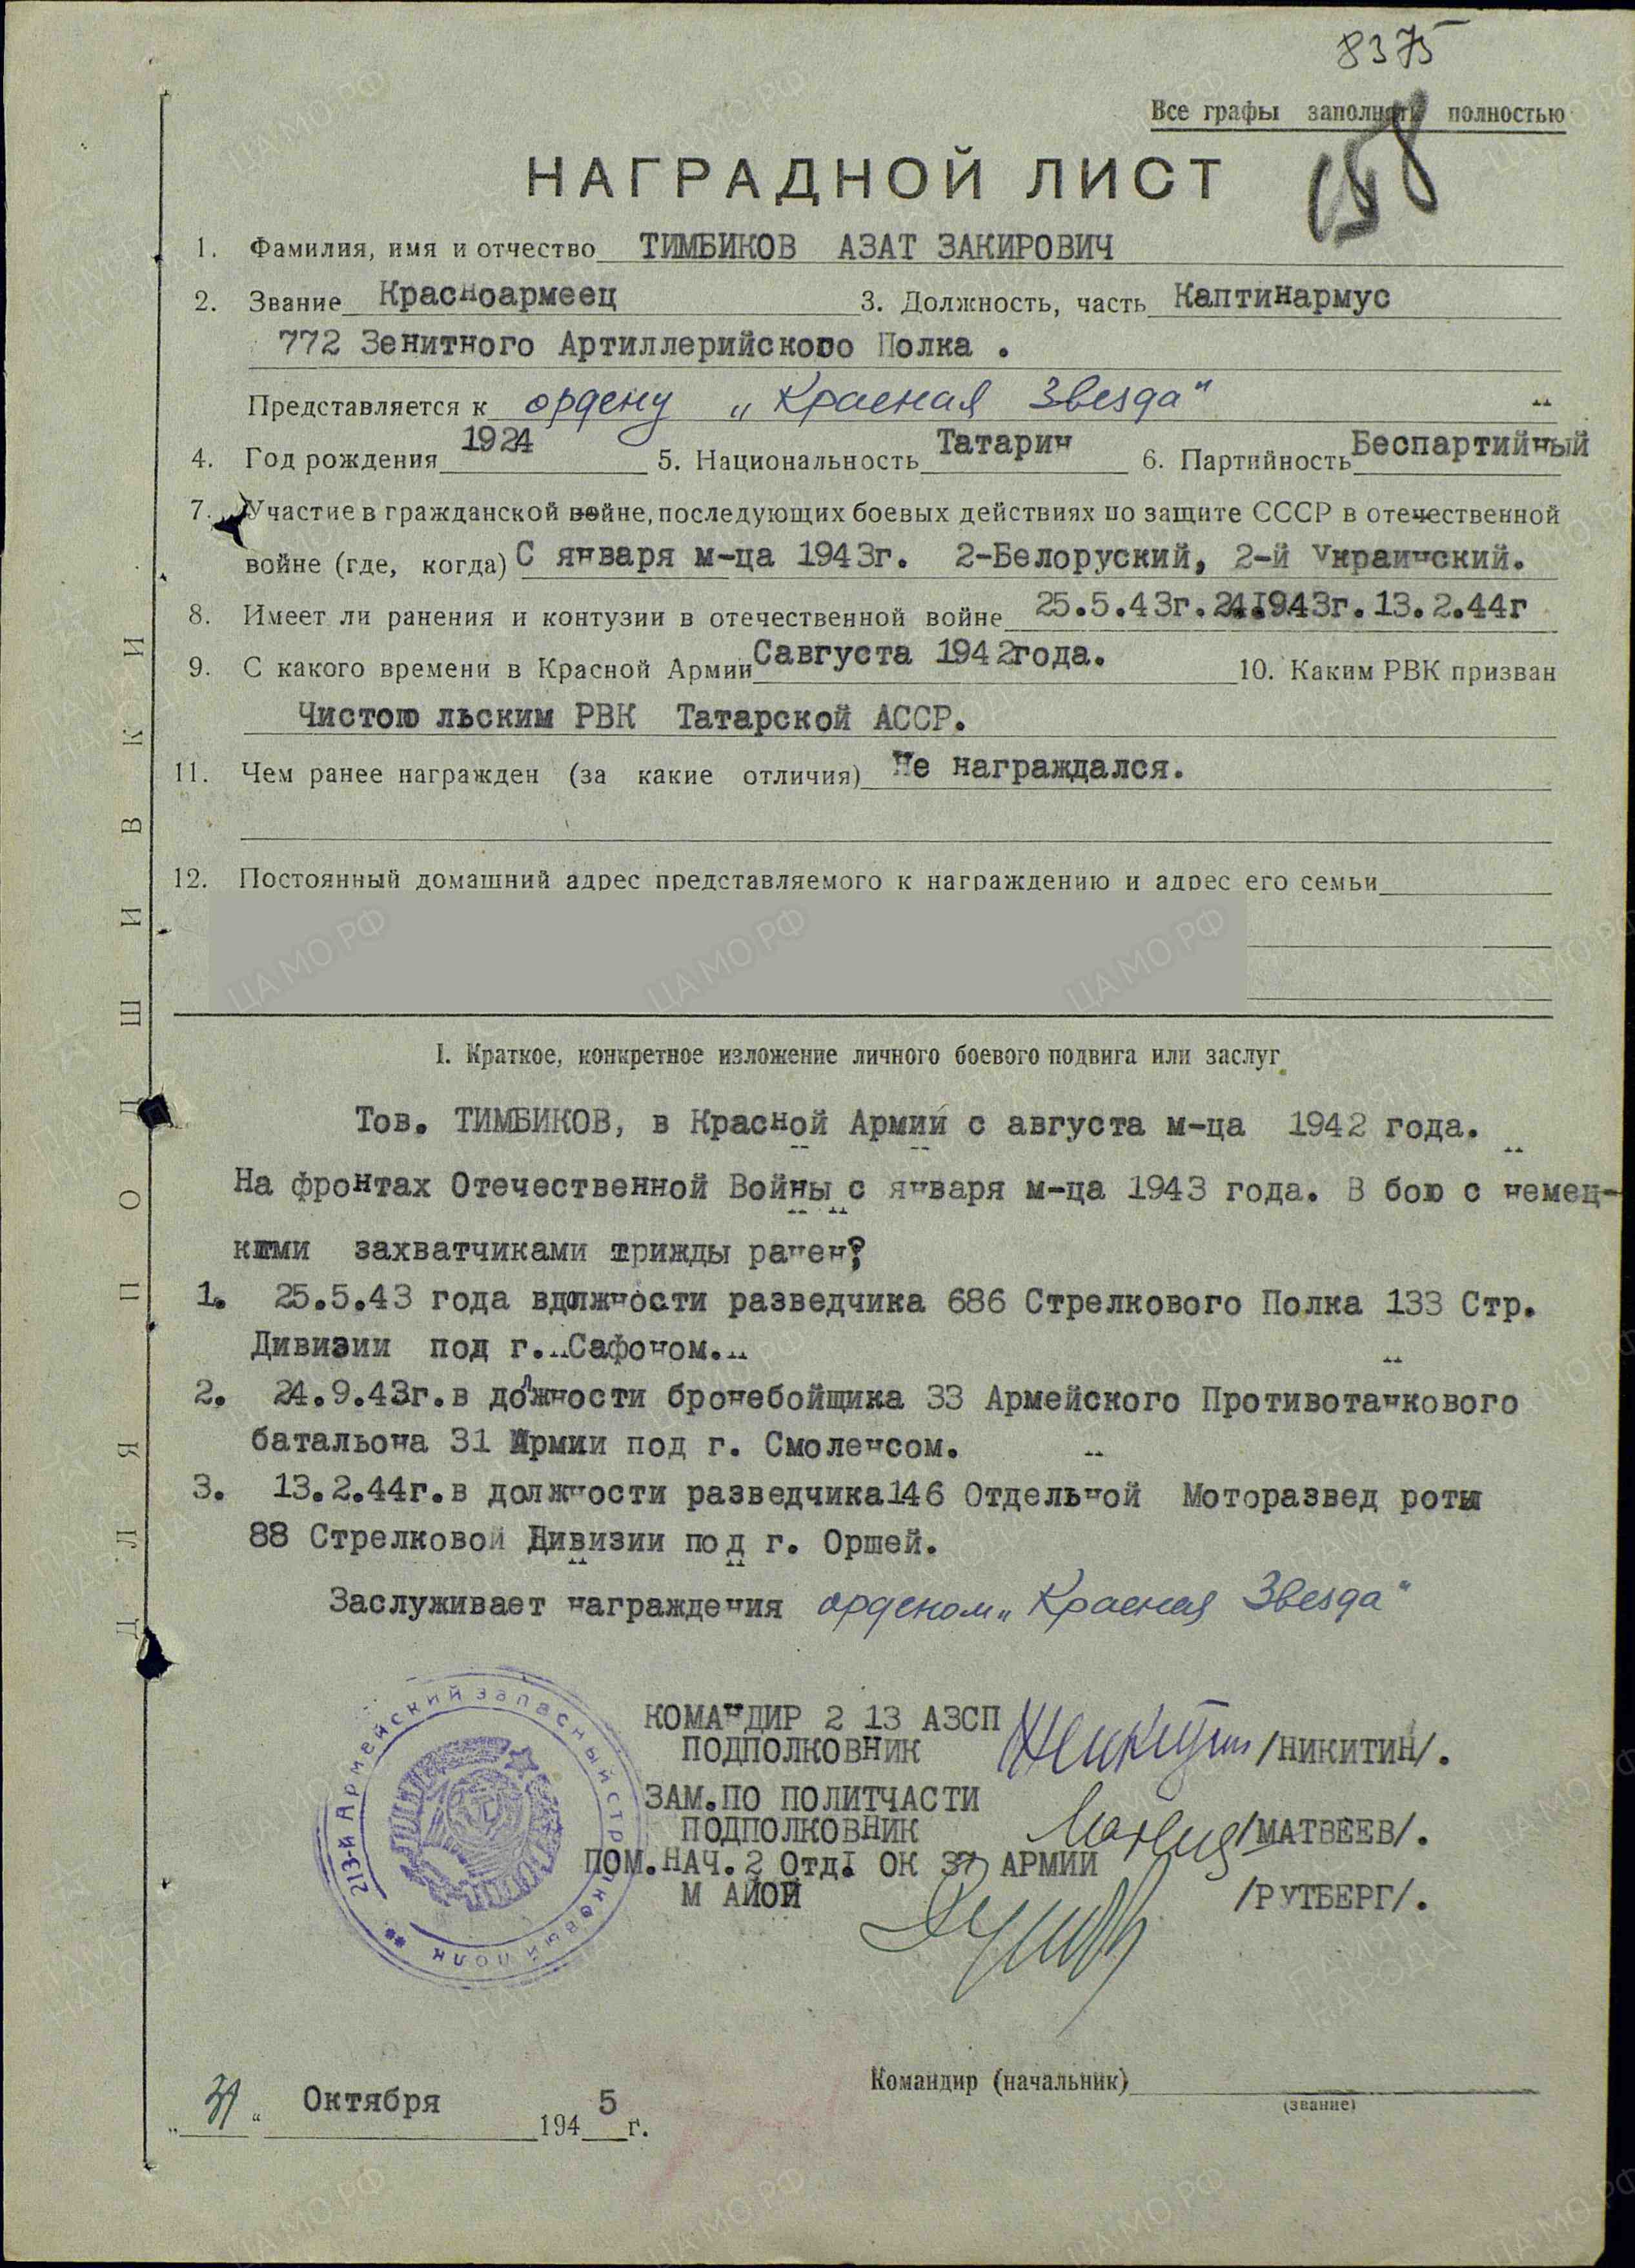 8375
Все графы заполнять полностью
158
НАГРАДНОЙ ЛИСТ
1. Фамилия, имя и отчество ТИМБИКОВ АЗАТ ЗАКИРОВИЧ
2. Звание Красноармеец 3. Должность, часть Каптинармус
772 Зенитного Артиллерийского Полка .
Представляется к ордену „Красная Звезда"
4. Год рождения 1924 5. Национальность Татарин 6. Партийность Беспартийный
7. Участие в гражданской войне, последующих боевых действиях по защите СССР в отечественной
войне (где, когда) С января м-ца 1943г. 2-Белоруский, 2-й Украинский.
8. Имеет ли ранения и контузии в отечественной войне 25.5.43г. 24.9.43г. 13.2.44г
9. С какого времени в Красной Армии Савгуста 1942года. 10. Каким РВК призван
Чистопольским РВК Татарской АССР.
11. Чем ранее награжден (за какие отличия) Не награждался.
12. Постоянный домашний адрес представляемого к награждению и адрес его семьи
I. Краткое, конкретное изложение личного боевого подвига или заслуг
Тов. ТИМБИКОВ, в Красной Армии с августа м-ца 1942 года.
На фронтах Отечественной Войны с января м-ца 1943 года. В бою с немец-
кими захватчиками трижды ранен:
1. 25.5.43 года вдолжности разведчика 686 Стрелкового Полка 133 Стр.
Дивизии под г. Сафоном.
2. 24.9.43г. в должности бронебойщика 33 Армейского Противотанкового
батальона 31 Армии под г. Смоленсом.
3. 13.2.44г. в должности разведчика 146 Отдельной Моторазвед роты
88 Стрелковой Дивизии под г. Оршей.
Заслуживает награждения орденом „Красная Звезда"
213-й Армейский запасный стрелковый полк
КОМАНДИР 2 13 АЗСП
ПОДПОЛКОВНИК /НИКИТИН/.
ЗАМ.ПО ПОЛИТЧАСТИ
ПОДПОЛКОВНИК /МАТВЕЕВ/.
ПОМ.НАЧ. 2 Отд. ОК 37 АРМИИ
М АЙОЙ /РУТБЕРГ/.
Командир (начальник)
(звание)
„ " Октября 1945 г.
ДЛЯ ПОДШИВКИ
ЦА МО РФ
ПАМЯТЬ НАРОДА